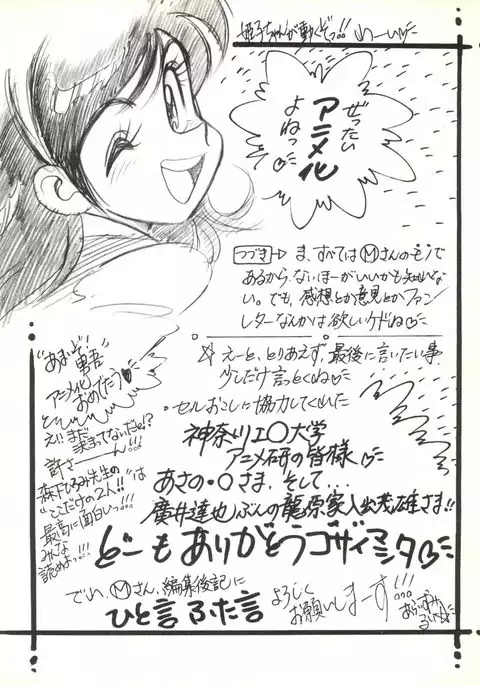 姫子ちゃんが動くぞっ!! わーい
ぜったい
アニメ化
よねっ
つづき→ ま、すべてはMさんのモノで
あるから、ないほーがいいかも知れな
い。でも、感想とか意見とかファン
レターなんかは欲しいケドね
えーと、とりあえず、最後に言いたい事
少しだけ言っとくね
・セルおこしに協力してくれた
神奈川工○大学
アニメ研の皆様
あさの・○さま、そして...
廣井達也ぶんの龍原家入出茂雄さま!!
どーもありがとうゴザイマシタ
でい、Mさん、編集後記に
ひと言ふた言
よろしく
お願いしまーす!!!
勇吾
アニメ化
おめでとう
えいまだ
決まってないだと!?
許さーん!!!
森下ひろみ先生の
"ここだけの2人!!"は
最高に面白いっ!!!
みんな
読めよっ!!!